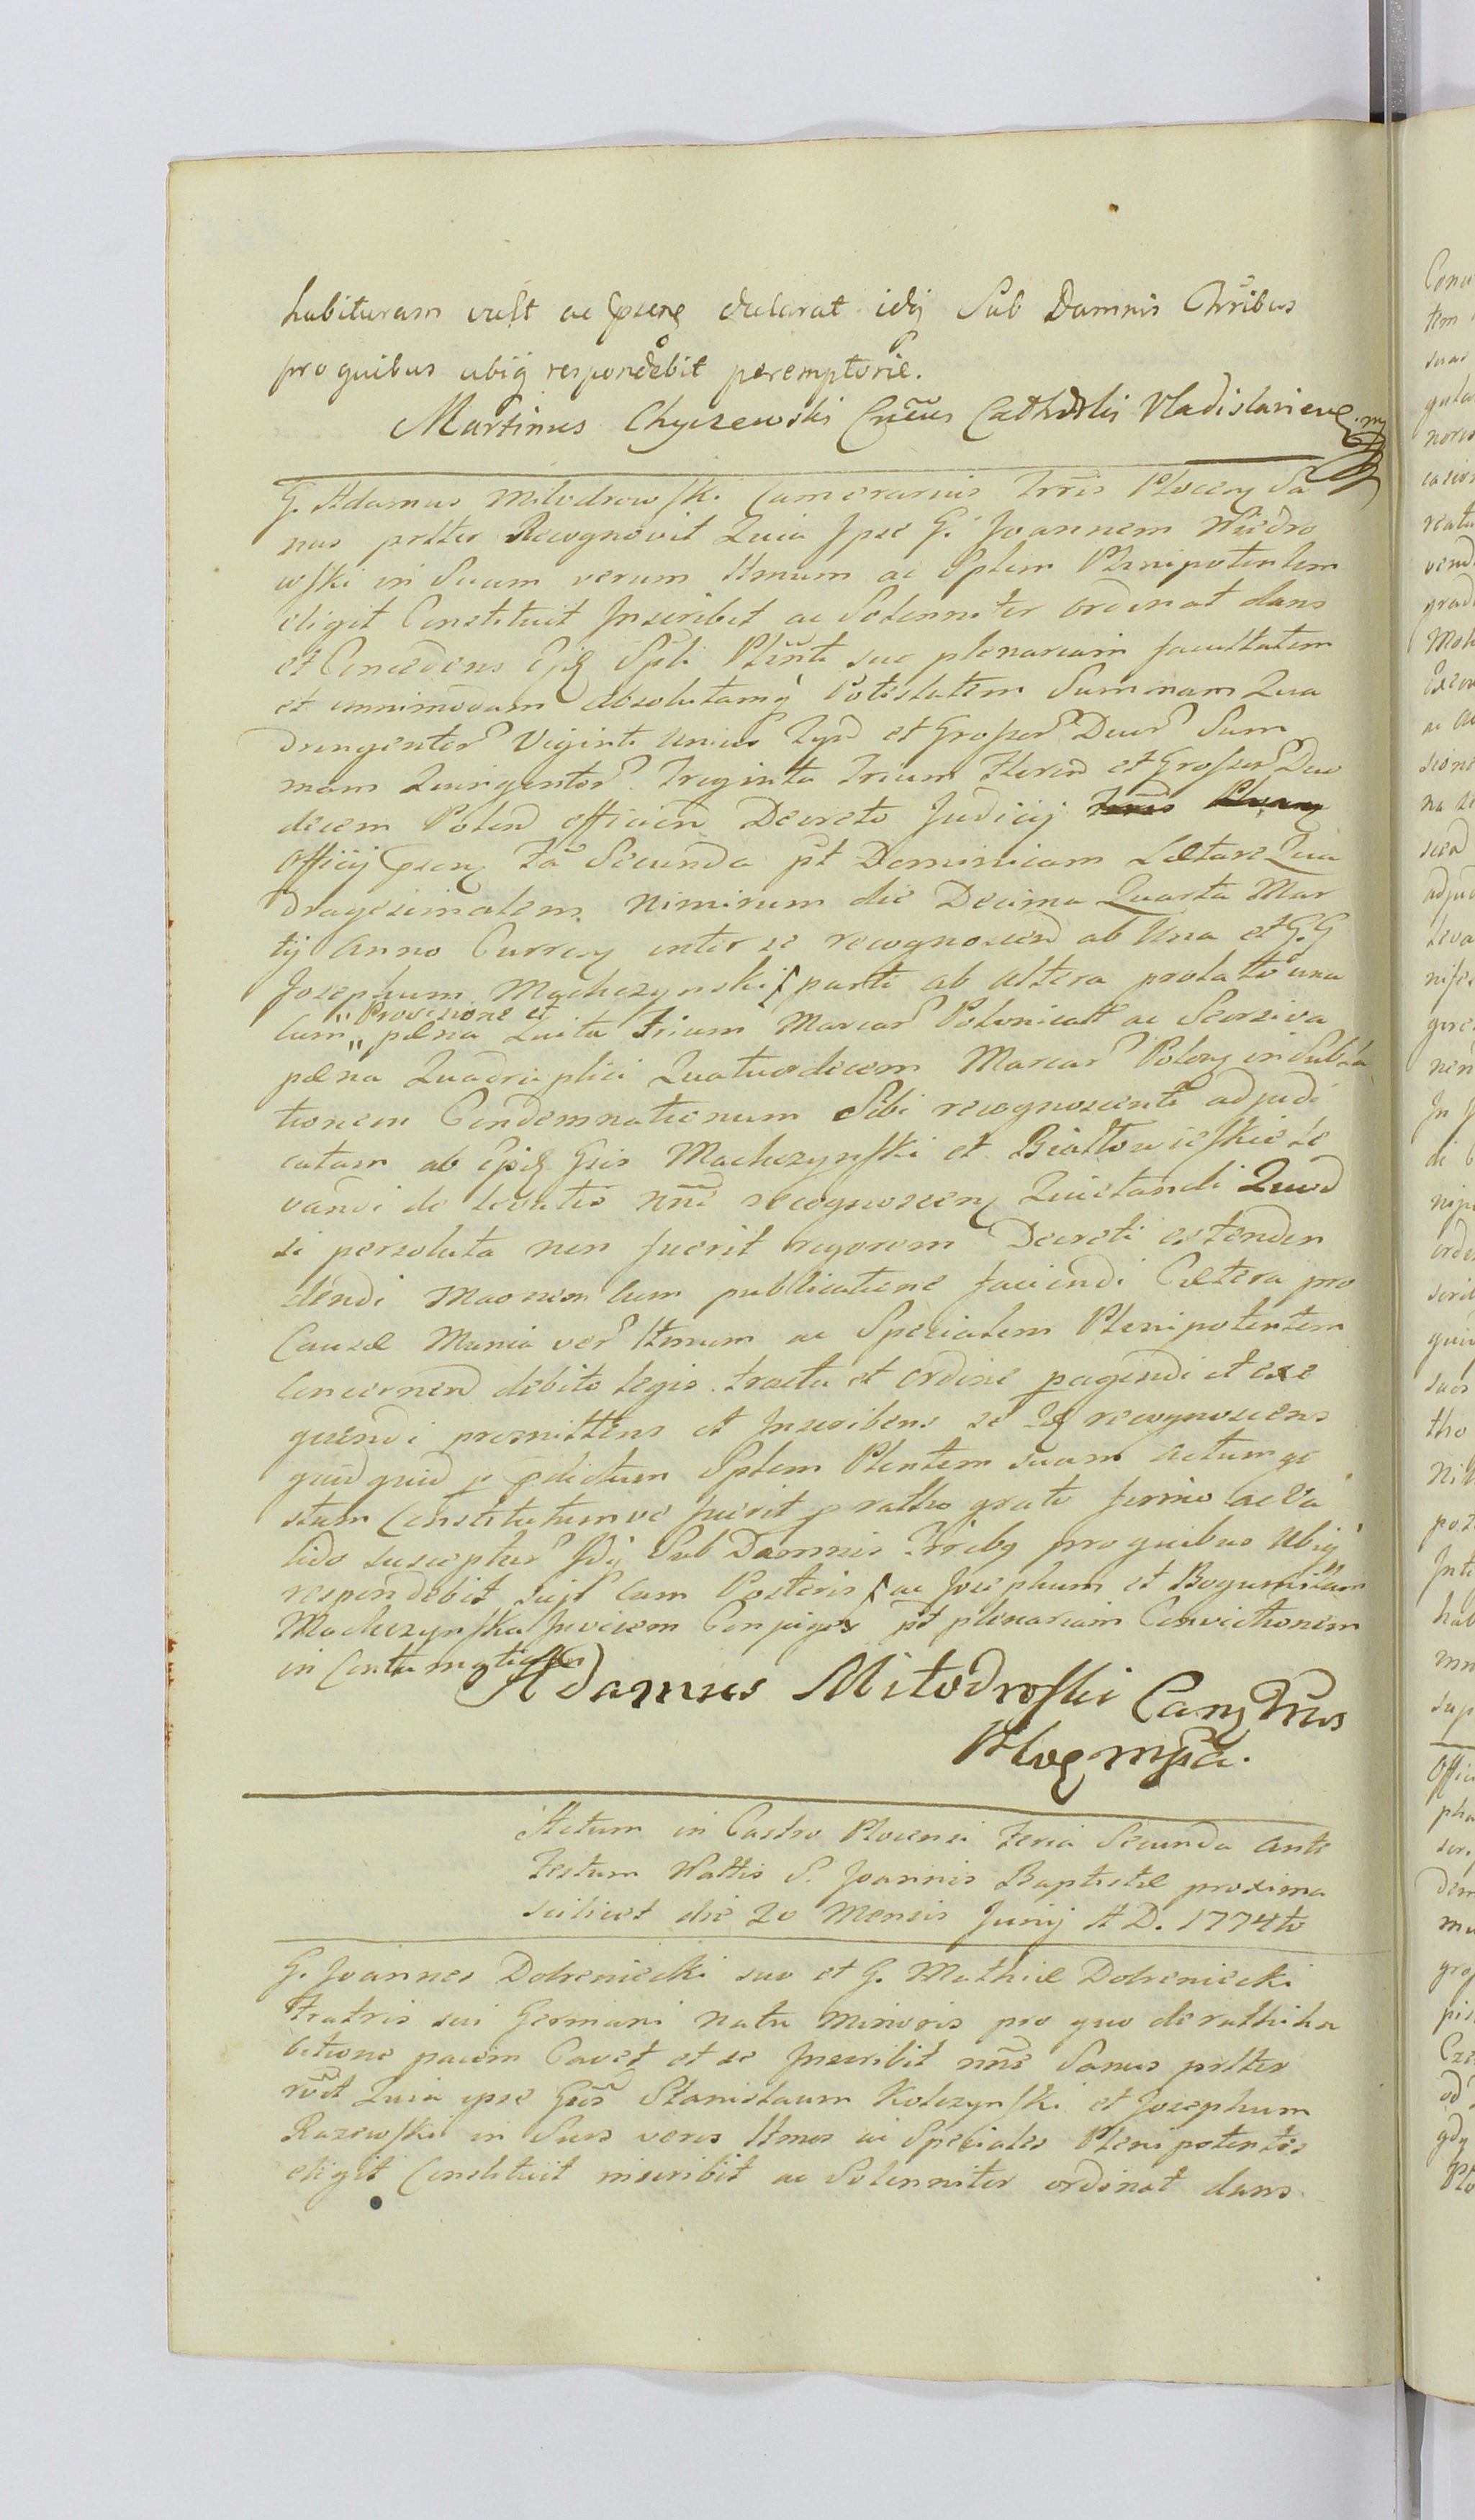 habituram vult ac psens declarat idq Sub Damnis Trribus
pro quibus ubiq respondebit peremptorie.
Martinus Chyczewski Cathdrlis Vladislaviens mp
G. Adamus Milodrowski Camerarius Trris Plocens Sa
nus prltter Recognovit Quia Ipse G. Joannem Niedro
wski in Suum verum ltmum ac Splem Plenipotentem
eligit Constituit Inscribit ac Solenniter ordinat dans
et Concedens Ejd Spli Plnti suo plenariam facultatem
et omnimodam absolutamq Potestatem Summam Qua
dringentor Viginti Unius Tynf et Grossor Duor Sum
mam Quingentor Triginta Trium Floren et Grossor Duo
decem Polon officien Decreto Judicij
Officij psens Fa Secunda pt Dominicam Lætare Qua
dragesimalem nimirum die Decima Quarta Mar
tij Anno Curren inter se recognoscen ab Una et G.G
Josephum Machczynski parte ab altera prolato una
Provisione et
cum pæna Luita Trium Marcar Polonicalt ac Seorsiva
pæna Quadruplici Quatuordecem Marcar Polon in Subla
tionem Condemnationum Sibi recognoscenti adjudi
catam ab Ejsd Gsis Machczynski et Białłowieskie le
vandi de levatis nne recognoscens Quietandi Quod
si persoluta non fuerit rigorem Decreti extenden
dendi cum publicatione faciendi Cætera pro
Causæ Munia ver ltmum ac Specialem Plenipotentem
Concernen debito legis tractu et ordine peragendi et exe
quendi promittens et Inscribens se Id recognoscens
quidquid p pdictum Splem Plentem suum actum ge
stum Constitutumve fuerit p ratho grato firmo ac Va
lido suscepturr Idq Sub Damnis Trribq pro quibus Ubiq
respondebit cum Posteris ac Josephum et Bogumiłam
Machczynska Invicem Conjuges pt plenariam Convictionem
in Contumatiam
Adamus Miłodroski Cam Trris
Ploc mpa.
Actum in Castro Plocensi Feria Secunda ante
Festum Nattis S. Joannis Baptistæ proxima
scilicet die 20 Mensis Junij A D. 1774to
G. Joannes Dobreniecki suo et G. Mathiæ Dobreniecki
Fratris sui Germani natu minoris pro quo de rathiha
bitione pacem Cavet et se Inscribit nne Sanus prltter
rct Quia ipse Gsos Stanislaum Kolczynski et Josephum
Razewski in Suos veros ltmos ac Speciales Plenipotentes
eligit Constituit inscribit ac Solenniter ordinat dans